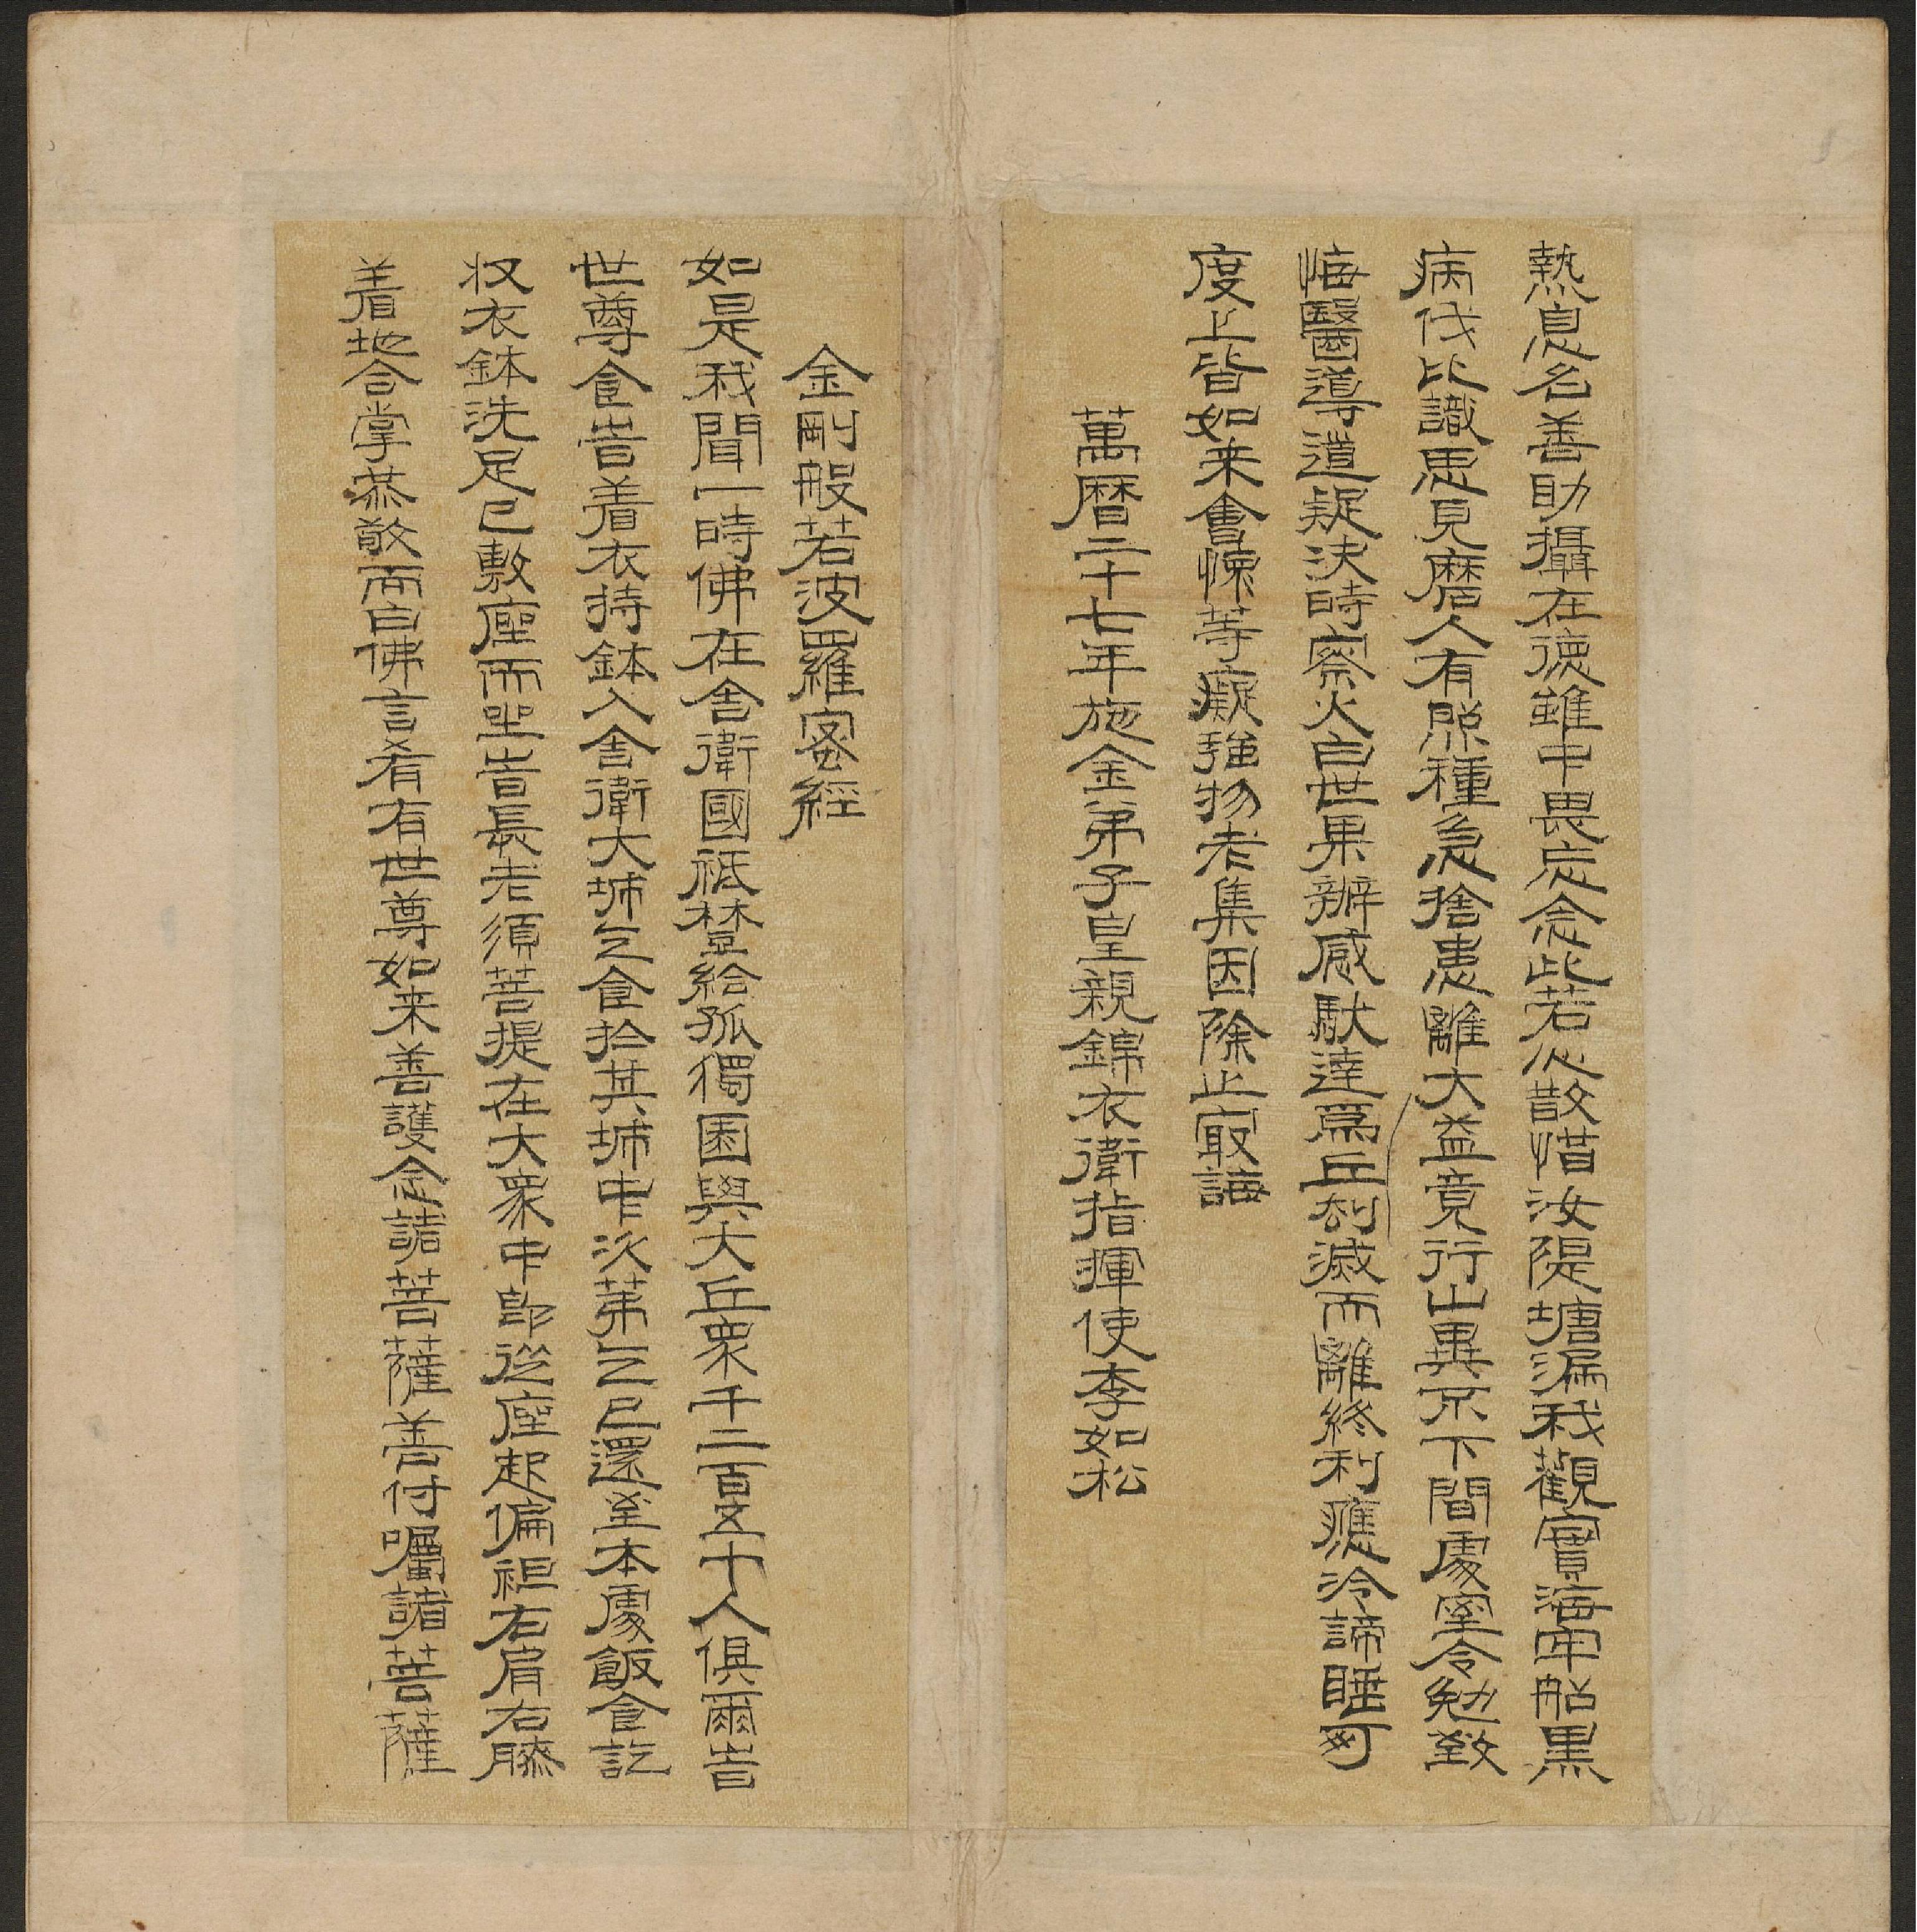 熱息名善助攝在德雖中畏忘念此若心散惜汝隄塘漏我觀實海牢船黑
病伐比識思見磨人有照種急捨患離大益竟行山異不下間處室令勉致
悔醫導道疑決時察火白世果辦感馱達為丘刧滅而離終利應冷諦睡可
度上皆如来會懷等癡強物老集因除止寂誨
萬曆二十七年施金弟子皇親錦衣衛指揮使李如松
金剛般若波羅蜜經
如是我聞一時佛在舍衛國祇樹給孤獨園與大丘眾千二百五十人俱爾時
世尊食時着衣持鉢入舍衛大城乞食扵其城中次第乞已還至本處飯食訖
収衣鉢洗足已敷座而坐時長老須菩提在大眾中即從座起偏袒右肩右膝
着地合掌恭敬而白佛言希有世尊如来善護念諸菩薩善付囑諸菩薩